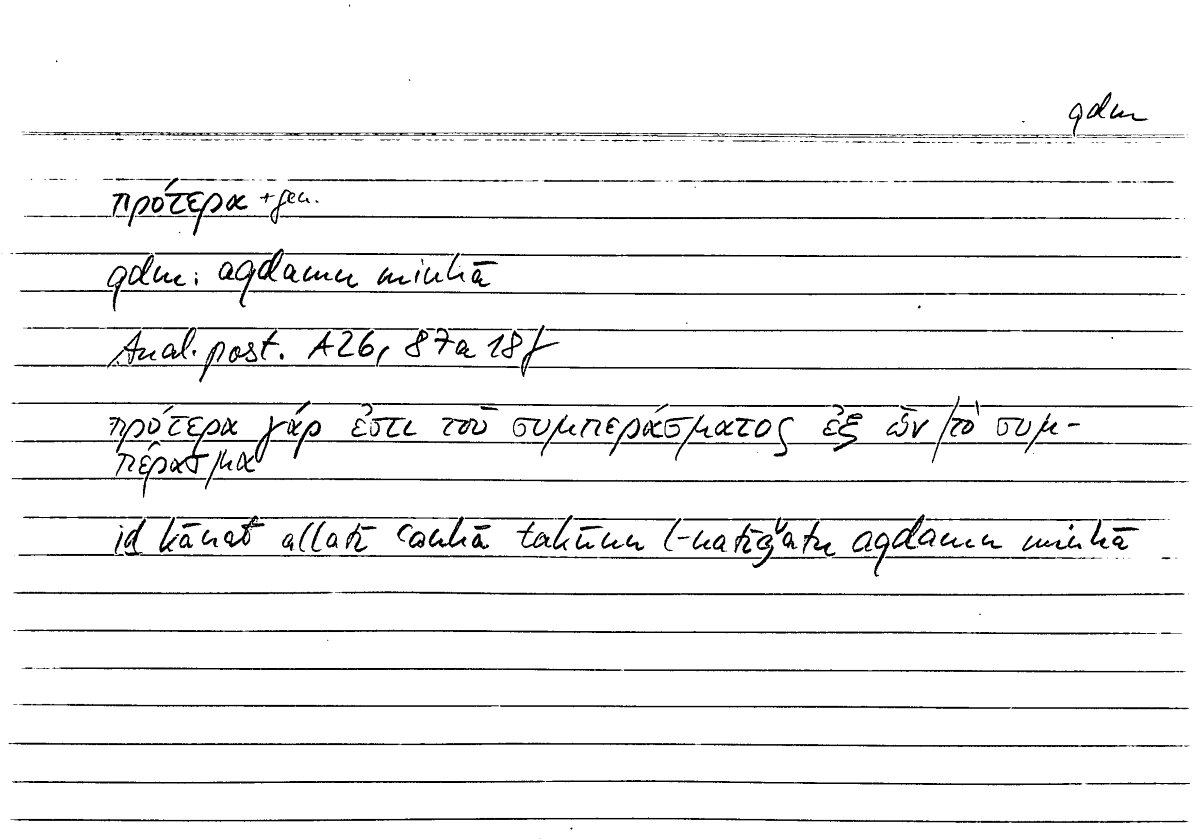 qdm
πρότερα + gen.
qdm: aqdamu minhā
Anal. post. A26, 87a 18f
πρότερα γάρ ἐστι τοῦ συμπεράσματος ἐξ ὧν / τὸ συμ-
πέρασμα
id kānat allatī ʿanhā takūnu l-natīǧatu aqdamu minhā